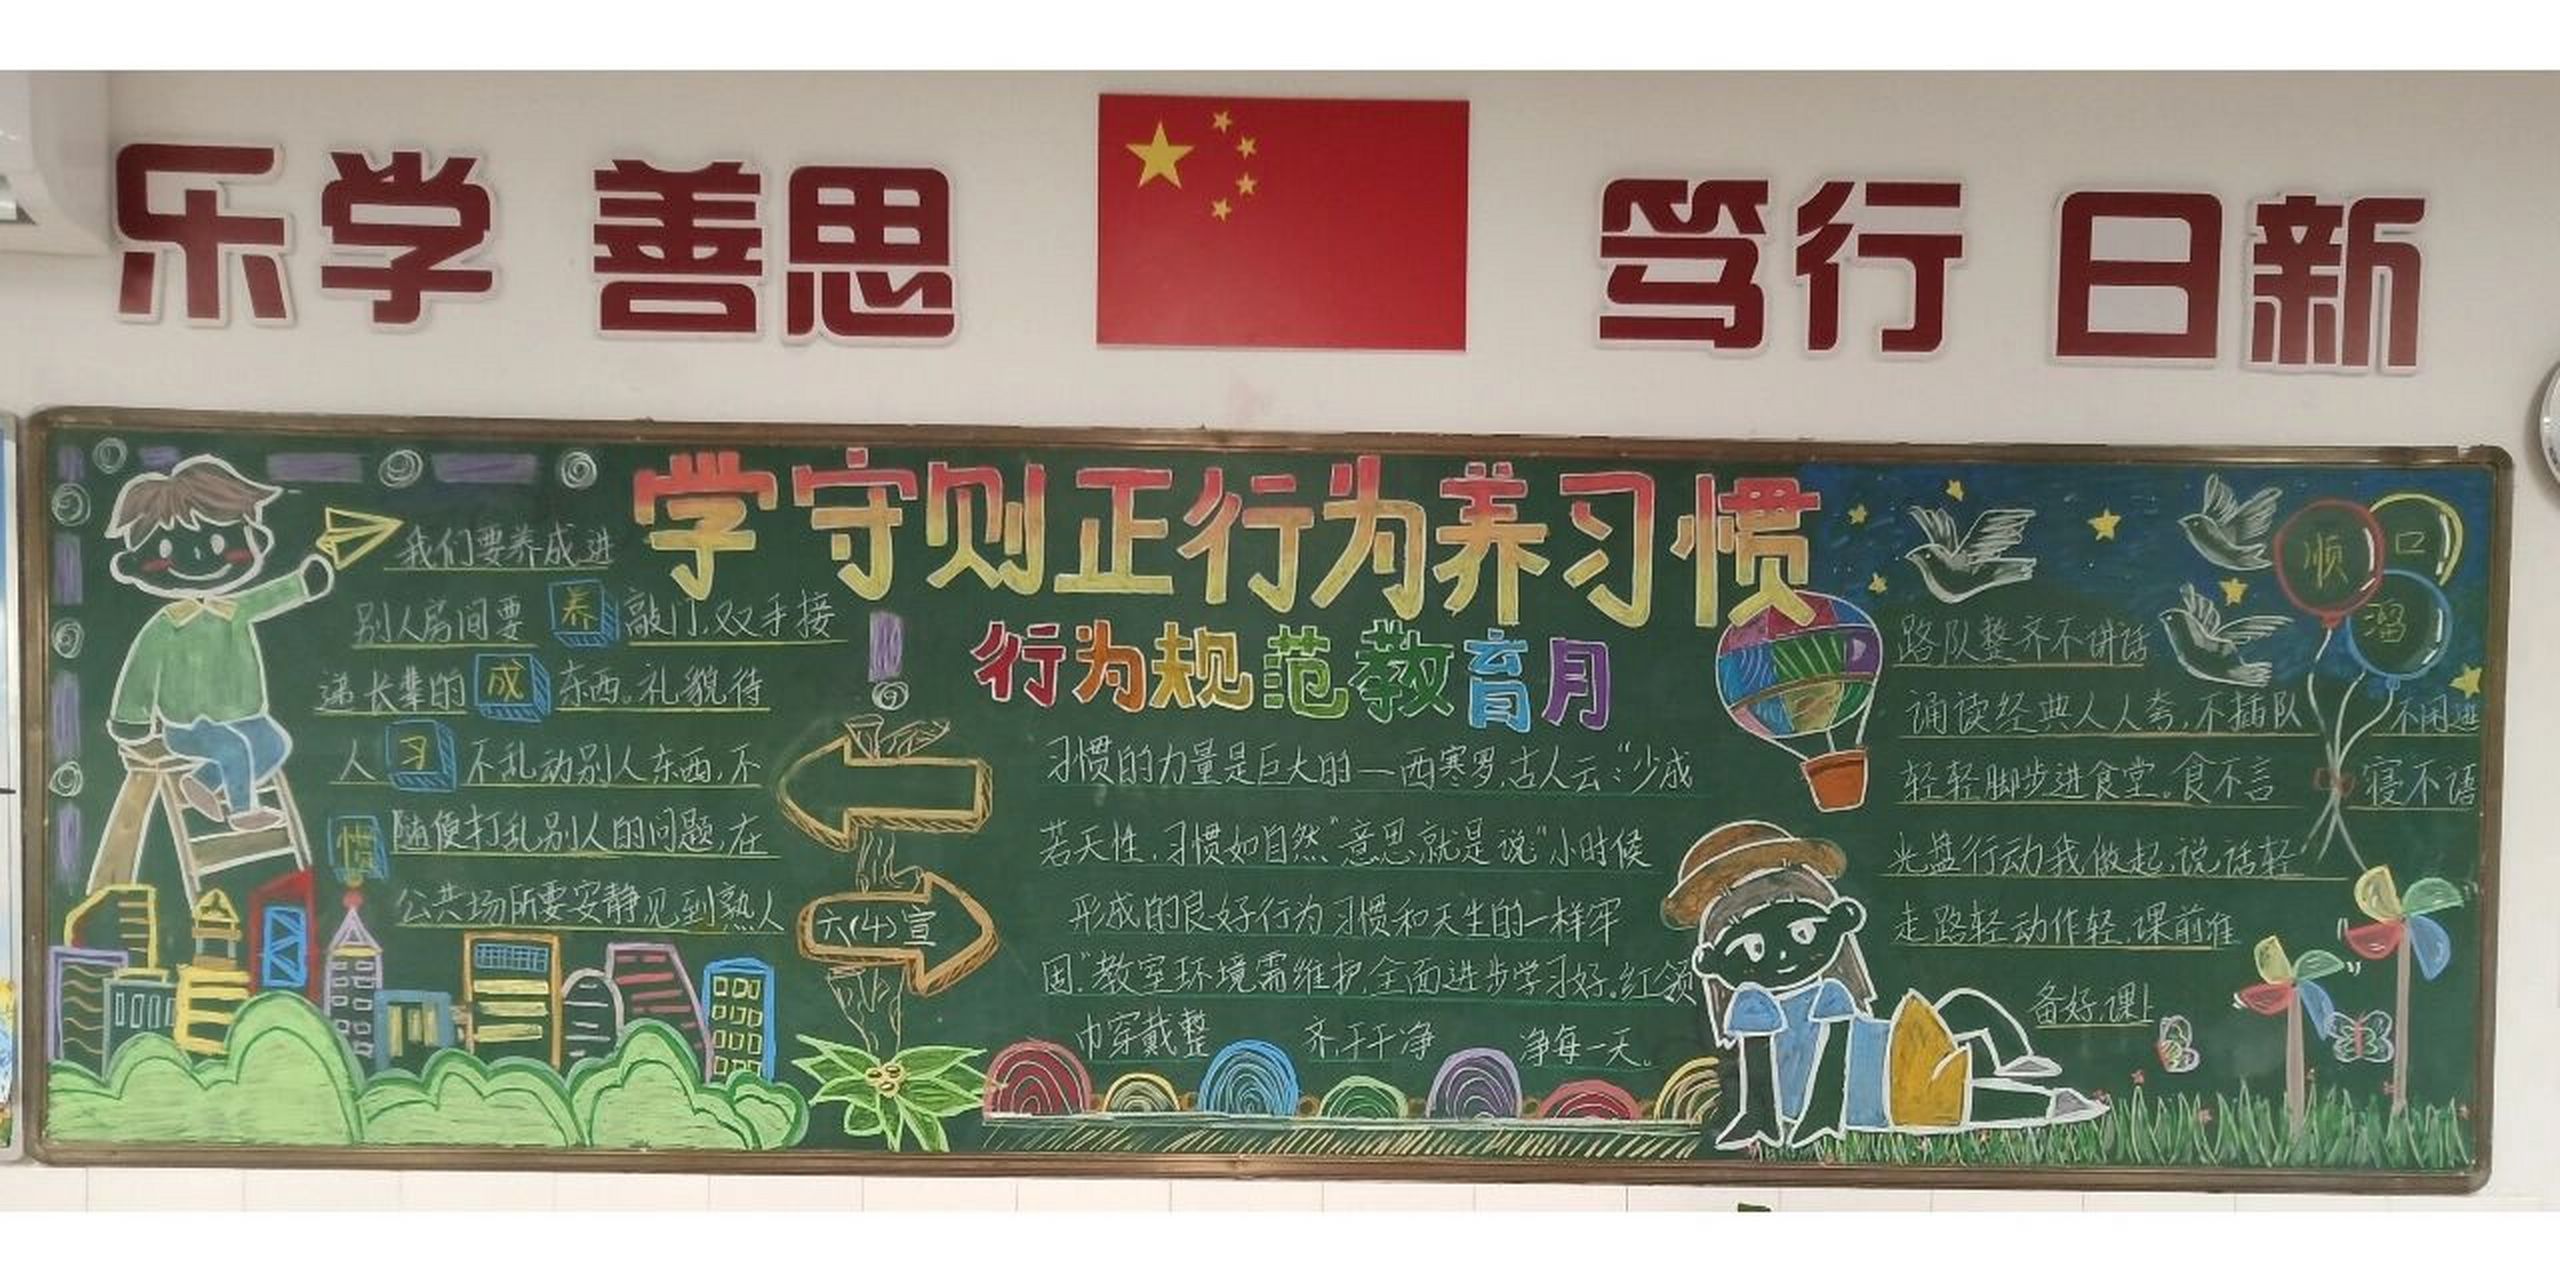 乐学 善思 笃行 日新
学守则正行为养习惯
行为规范教育月
我们要养成进
别人房间要 养 敲门,双手接
递长辈的 成 东西。礼貌待
人 习 不乱动别人东西,不
惯 随便打乱别人的问题,在
公共场所要安静见到熟人
六(4)宣
习惯的力量是巨大的—西塞罗,古人云:“少成
若天性,习惯如自然”意思就是说“小时候
形成的良好行为习惯和天生的一样牢
固.”教室环境需维护,全面进步学习好。红领
巾穿戴整 齐,干干净 净每一天。
顺口溜
路队整齐不讲话
诵读经典人人夸,不插队 不闲逛
轻轻脚步进食堂。食不言 寝不语
光盘行动我做起,说话轻
走路轻动作轻,课前准
备好,课上